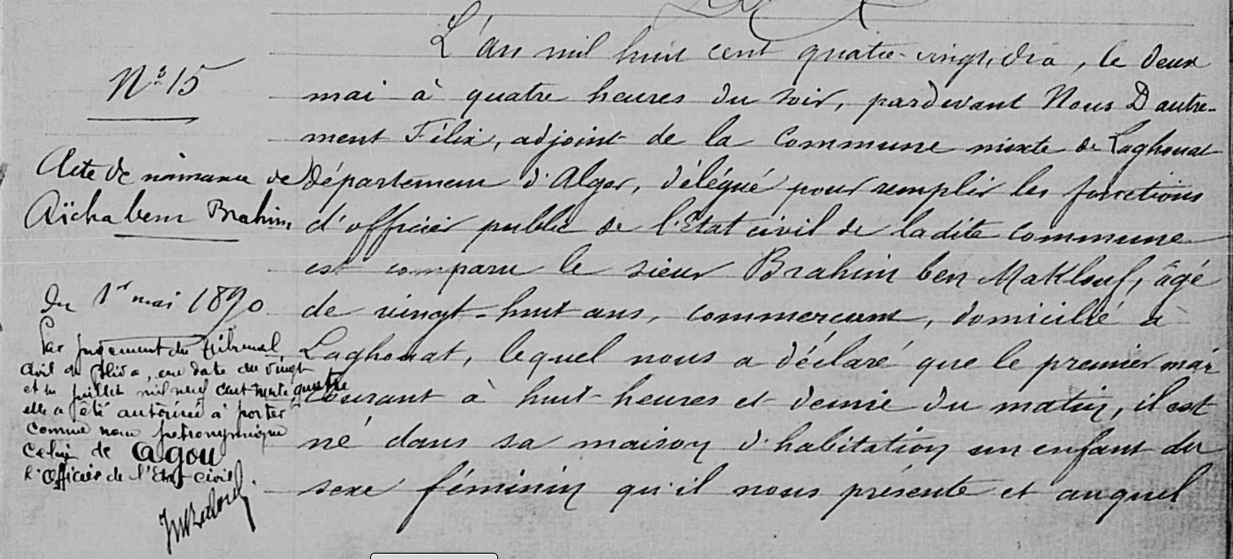 N° 15
Acte de naissance de
Aïcha bent Brahim
du 1er mai 1890
Par jugement du tribunal
civil de Blida, en date du vingt
et un juillet mil neuf cent trente quatre
elle a été autorisée à porter
comme nom patronymique
celui de Agou
L'Officier de l'Etat-civil
L'an mil huit cent quatre-vingt-dix, le deux
mai à quatre heures du soir, pardevant Nous Dautre-
ment Félix, adjoint de la Commune mixte de Laghouat
département d'Alger, délégué pour remplir les fonctions
d'officier public de l'Etat civil de ladite commune
est comparu le sieur Brahim ben Maklouf, âgé
de vingt-huit ans, commercant, domicilié à
Laghouat, lequel nous a déclaré que le premier mai
courant à huit heures et demie du matin, il est
né dans sa maison d'habitation un enfant du
sexe féminin qu'il nous présente et auquel